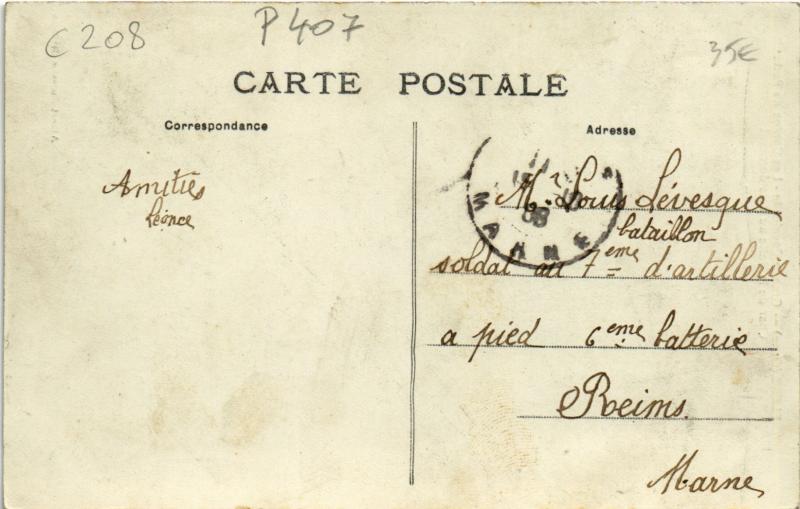 C208
P407
35€
CARTE POSTALE
Correspondance
Amitiés
Léonce
Adresse
Mr Louis Lévesque
bataillon
soldat au 7eme d'artillerie
a pied 6eme batterie
Reims
Marne
MARNE
08